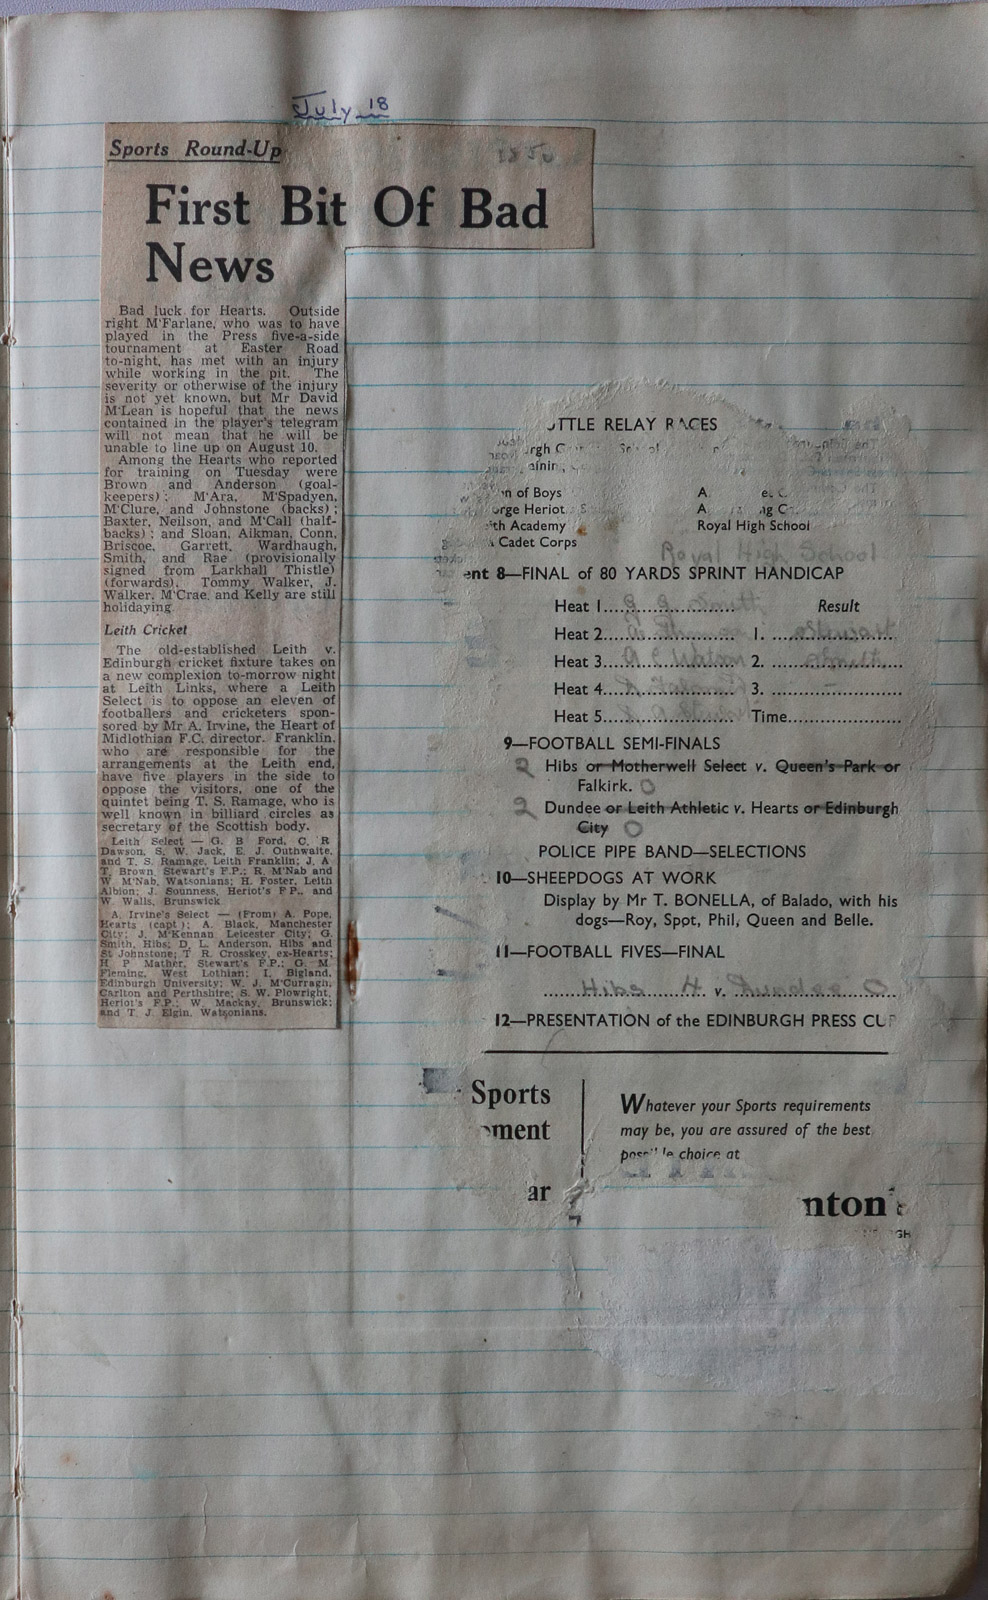 July 18
Sports Round-Up
First Bit Of Bad
News
Bad luck for Hearts. Outside
right M'Farlane, who was to have
played in the Press five-a-side
tournament at Easter Road
to-night, has met with an injury
while working in the pit. The
severity or otherwise of the injury
is not yet known, but Mr David
M'Lean is hopeful that the news
contained in the player's telegram
will not mean that he will be
unable to line up on August 10.
Among the Hearts who reported
for training on Tuesday were
Brown and Anderson (goal-
keepers); M'Ara, M'Spadyen,
M'Clure, and Johnstone (backs);
Baxter, Neilson, and M'Call (half-
backs); and Sloan, Aikman, Conn,
Briscoe, Garrett, Wardhaugh,
Smith, and Rae (provisionally
signed from Larkhall Thistle)
(forwards). Tommy Walker, J.
Walker, M'Crae, and Kelly are still
holidaying.
Leith Cricket
The old-established Leith v.
Edinburgh cricket fixture takes on
a new complexion to-morrow night
at Leith Links, where a Leith
Select is to oppose an eleven of
footballers and cricketers spon-
sored by Mr A. Irvine, the Heart of
Midlothian F.C. director. Franklin,
who are responsible for the
arrangements at the Leith end,
have five players in the side to
oppose the visitors, one of the
quintet being T. S. Ramage, who is
well known in billiard circles as
secretary of the Scottish body.
Leith Select — G. B Ford, C. R
Dawson, S. W. Jack, E. J. Outhwaite,
and T. S. Ramage, Leith Franklin; J. A
T. Brown, Stewart's F.P.; R. M'Nab and
W. M'Nab, Watsonians; H. Foster, Leith
Albion; J. Sounness, Heriot's F P., and
W. Walls, Brunswick
A. Irvine's Select — (From) A. Pope,
Hearts (capt.); A. Black, Manchester
City; J. M'Kennan Leicester City; G.
Smith, Hibs; D. L. Anderson, Hibs and
St Johnstone; T R. Crosskey, ex-Hearts;
H P Mather, Stewart's F.P.; G. M
Fleming, West Lothian; I. Bigland,
Edinburgh University; W. J. M'Curragh,
Carlton and Perthshire; S. W. Plowright,
Heriot's F.P.; W. Mackay, Brunswick;
and T. J. Elgin, Watsonians.
TTLE RELAY RACES
n of Boys
orge Heriot
ith Academy Royal High School
Cadet Corps
Royal High School
ent 8—FINAL of 80 YARDS SPRINT HANDICAP
Heat 1 Smith Result
Heat 2 1. Stewart
Heat 3 Watson 2. Smith
Heat 4 3. –
Heat 5 Time
9—FOOTBALL SEMI-FINALS
2 Hibs or Motherwell Select v. Queen's Park or
Falkirk. 0
2 Dundee or Leith Athletic v. Hearts or Edinburgh
City 0
POLICE PIPE BAND—SELECTIONS
10—SHEEPDOGS AT WORK
Display by Mr T. BONELLA, of Balado, with his
dogs—Roy, Spot, Phil, Queen and Belle.
11—FOOTBALL FIVES—FINAL
Hibs 4 v. Dundee 0
12—PRESENTATION of the EDINBURGH PRESS CUP
Sports
ment
ar
Whatever your Sports requirements
may be, you are assured of the best
choice at
nton's